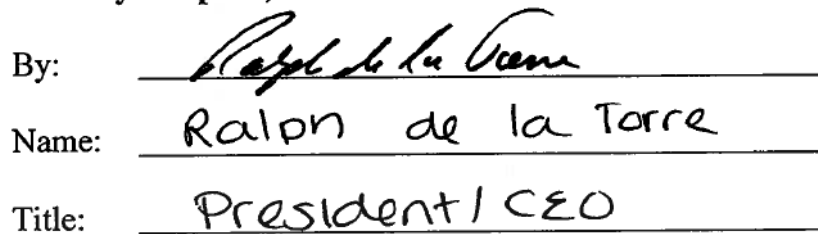 By: Ralph de la Torre
Name: Ralph de la Torre
Title: President/CEO